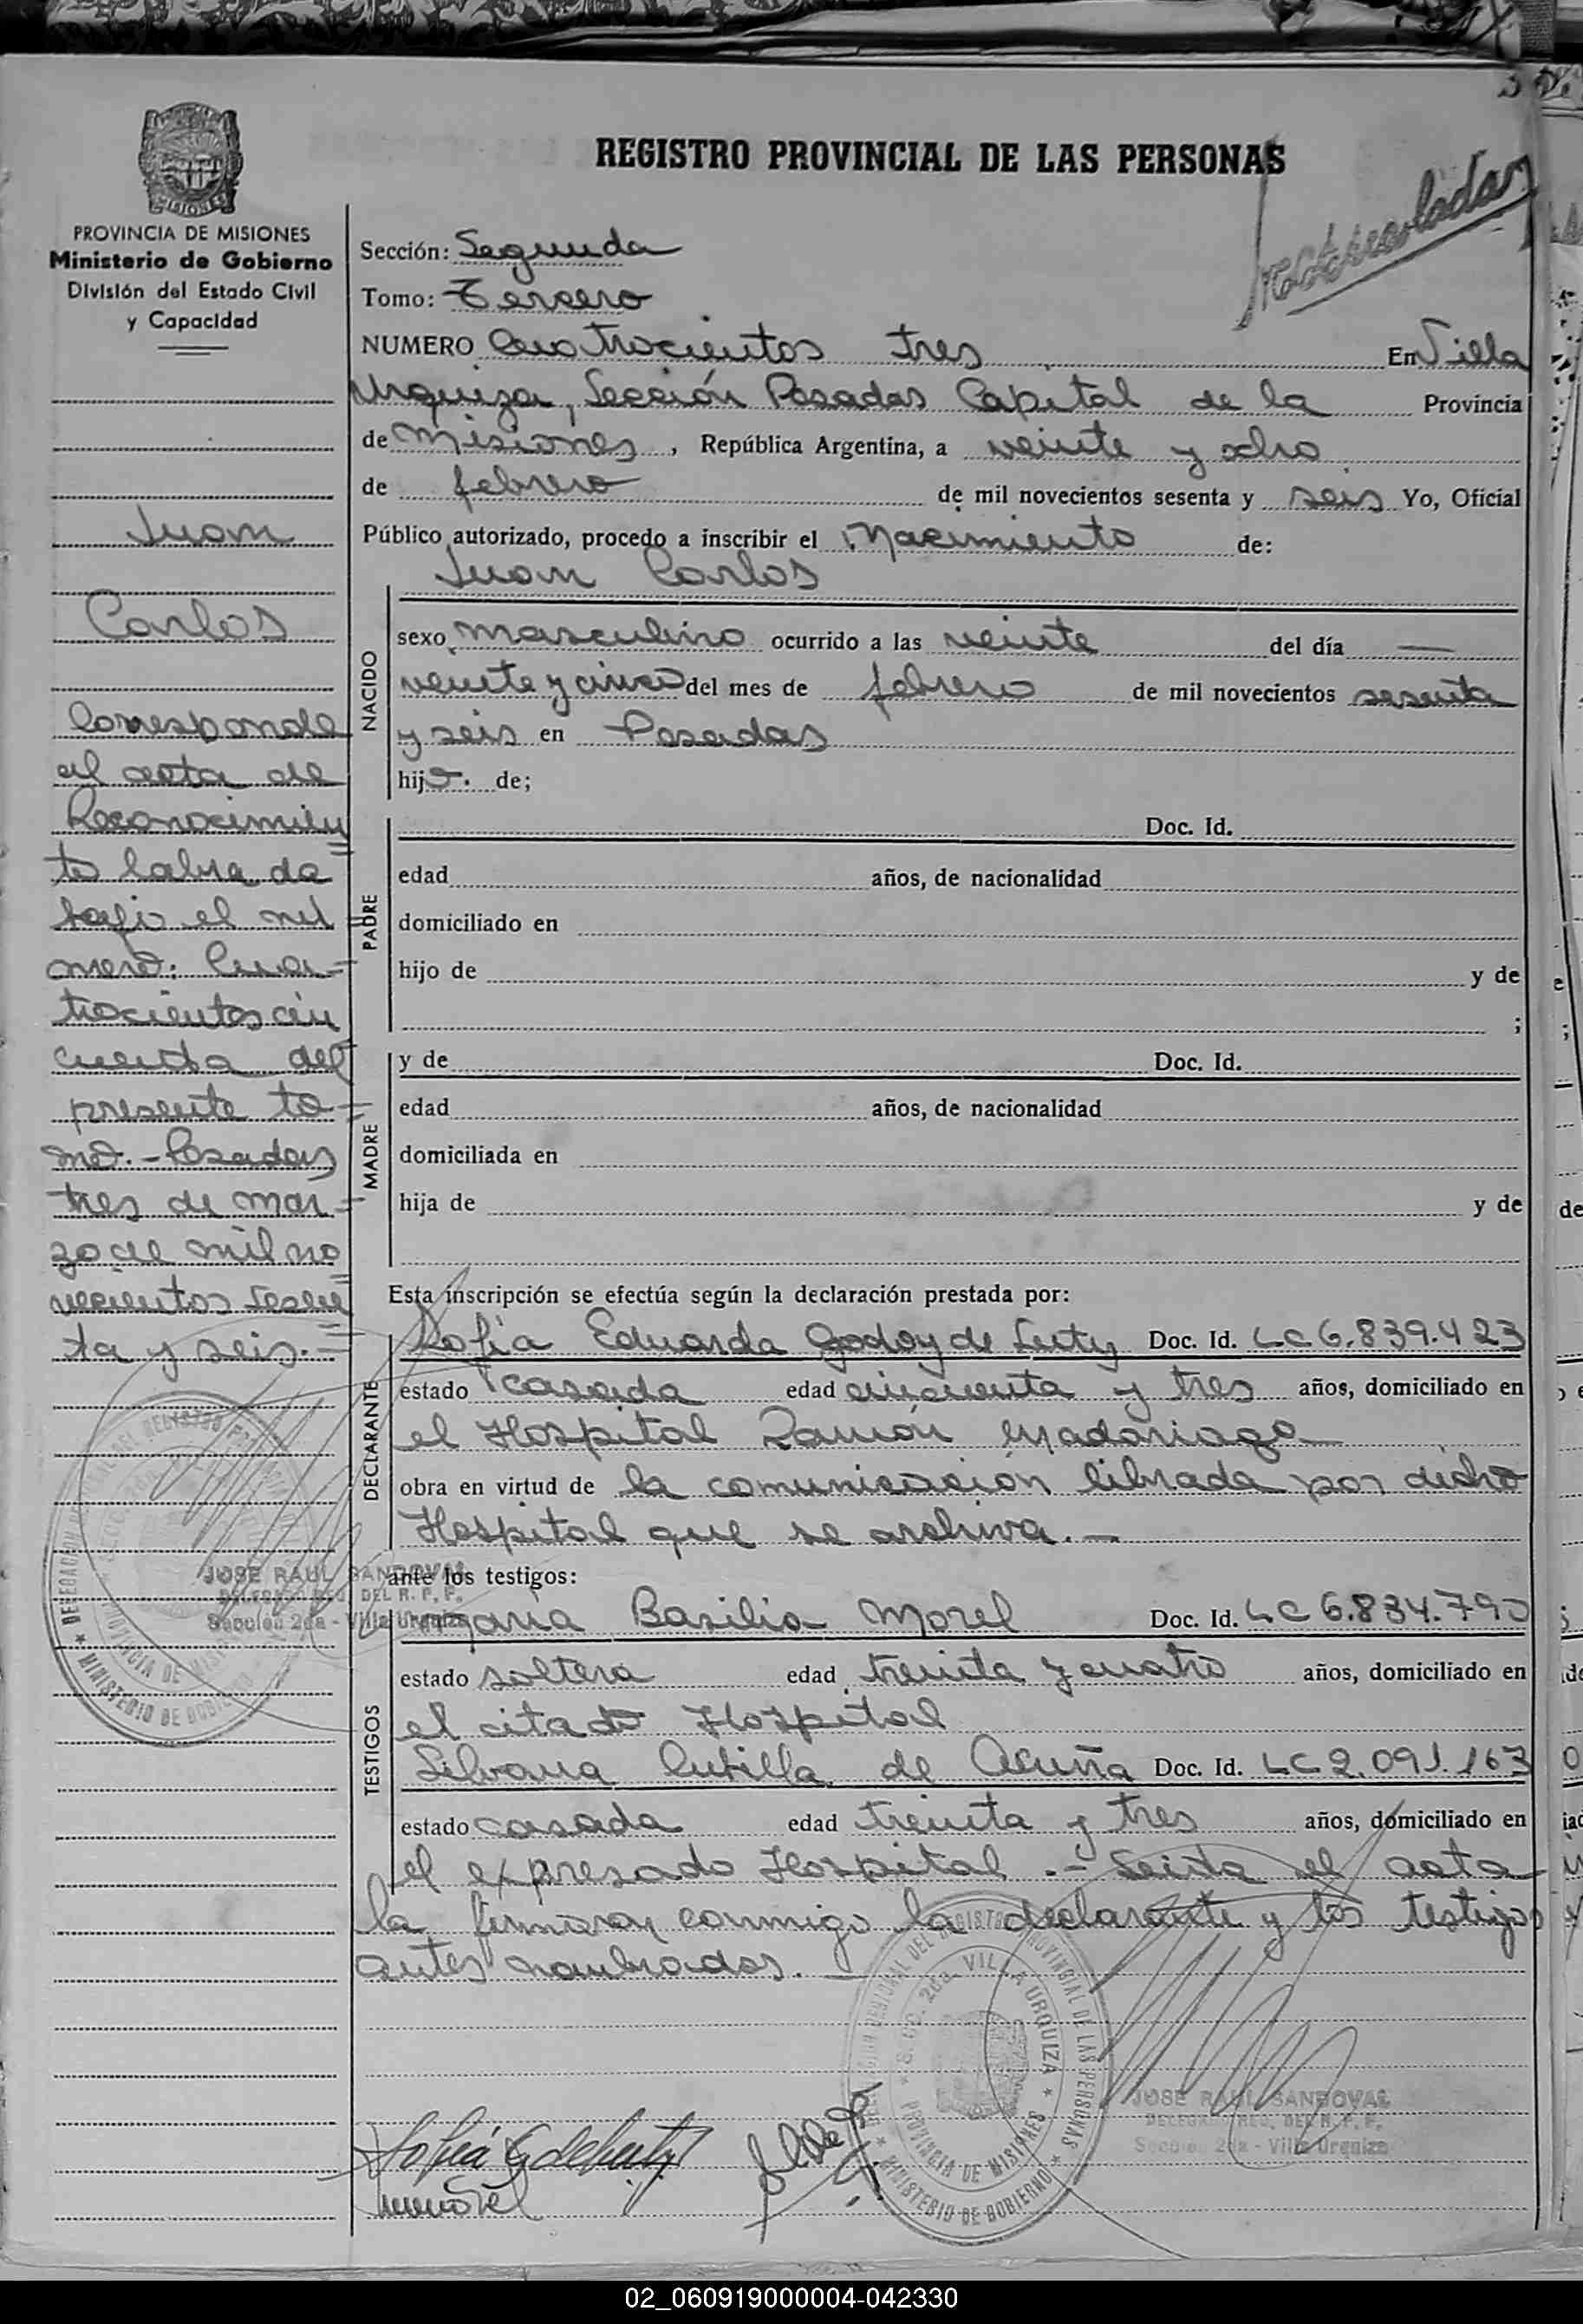 REGISTRO PROVINCIAL DE LAS PERSONAS
MISIONES
PROVINCIA DE MISIONES
Ministerio de Gobierno
División del Estado Civil
y Capacidad
Juan
Carlos
Corresponde
al acta de
Reconocimien
to labra da
bajo el nú
mero: Cua=
trocientos cin
cuenta del
presente to=
mo. - Posadas
tres de mar=
zo de mil no
vecientos sesen
ta y seis.=
Sección: Segunda
Tomo: Tercero
NUMERO Cuatrocientos tres En Villa
Urquiza, Sección Posadas Capital de la Provincia
de Misiones, República Argentina, a veinte y ocho
de febrero de mil novecientos sesenta y seis Yo, Oficial
Público autorizado, procedo a inscribir el Nacimiento de:
Juan Carlos
NACIDO
sexo masculino ocurrido a las veinte del día —
veinte y cinco del mes de febrero de mil novecientos sesenta
y seis en Posadas
hijo. de;
PADRE
Doc. Id.
edad años, de nacionalidad
domiciliado en
hijo de y de
;
MADRE
y de Doc. Id.
edad años, de nacionalidad
domiciliada en
hija de y de
Esta inscripción se efectúa según la declaración prestada por:
DECLARANTE
Sofía Eduarda Godoy de Doc. Id. LC 6.839.423
estado casada edad cincuenta y tres años, domiciliado en
el Hospital Ramón Madariaga
obra en virtud de la comunicación librada por dicho
Hospital que se archiva.—
ante los testigos:
TESTIGOS
María Basilia Morel Doc. Id. LC 6.834.790
estado soltera edad treinta y cuatro años, domiciliado en
el citado Hospital
Silvana de Acuña Doc. Id. LC 2.091.163
estado casada edad treinta y tres años, domiciliado en
el expresado Hospital .- Leida el acta
la firmaron conmigo la declarante y los testigos
antes nombrados. —
JOSE RAUL SANDOVAL
DELEGADO REG. DEL R. P. P.
Sección 2da - Villa Urquiza
DELEGACION REGIONAL DEL REGISTRO PROVINCIAL DE LAS PERSONAS
SECC. 2da. VILLA URQUIZA
PROVINCIA DE MISIONES
MINISTERIO DE GOBIERNO
JOSE RAUL SANDOVAL
DELEGADO REG. DEL R. P. P.
Sección 2da - Villa Urquiza
02_060919000004-042330